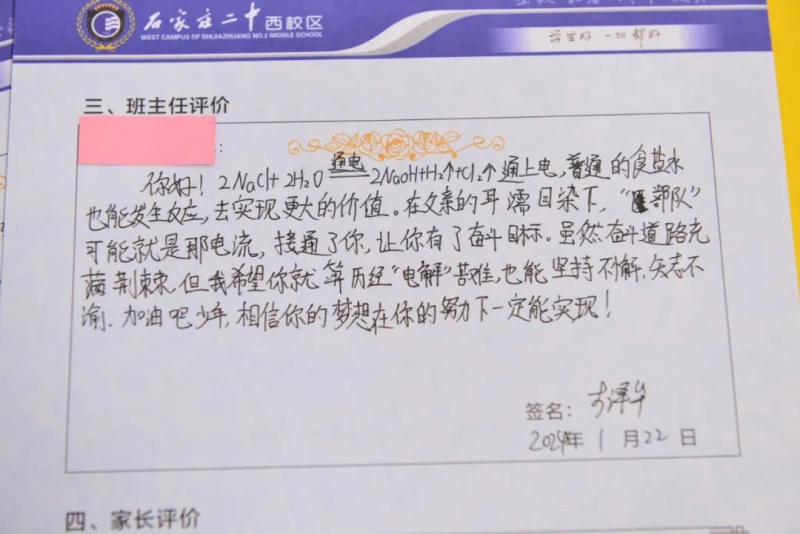 石家庄二中西校区
WEST CAMPUS OF SHIJIAZHUANG NO.2 MIDDLE SCHOOL
学生好 一切都好
三、班主任评价
:
你好！2NaCl+2H₂O 通电 2NaOH+H₂↑+Cl₂↑通上电，普通的食盐水
也能发生反应，去实现更大的价值。在父亲的耳濡目染下，“鄂队”
可能就是那电流，接通了你，让你有了奋斗目标。虽然奋斗道路充
满荆棘，但我希望你就算历经“电解”苦难，也能坚持不懈，矢志不
渝．加油吧少年，相信你的梦想在你的努力下一定能实现！
签名：
2024年 1 月 22 日
四、家长评价